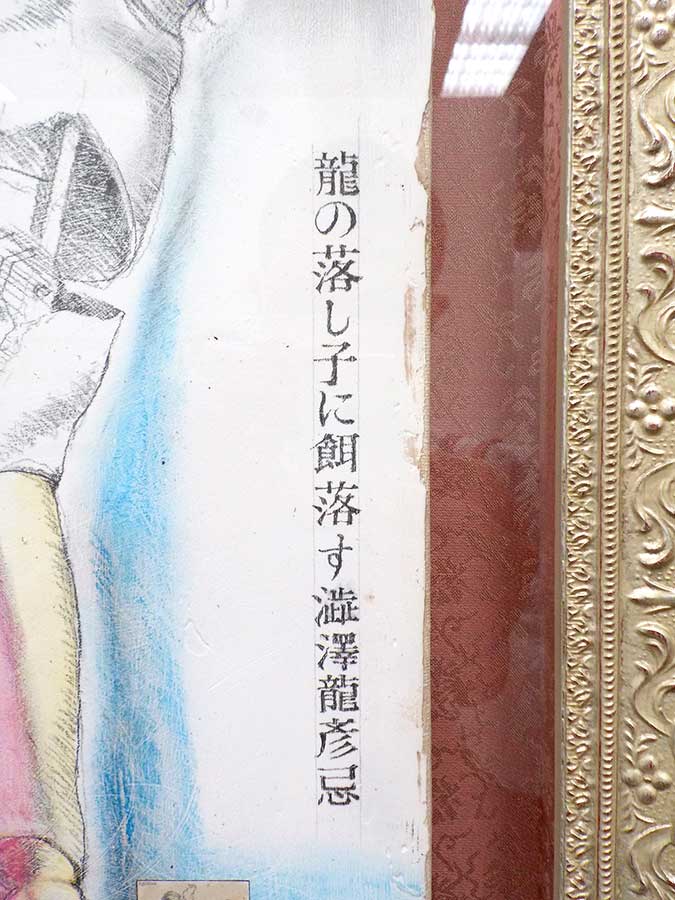 龍の落し子に餌落す澁澤龍彥忌